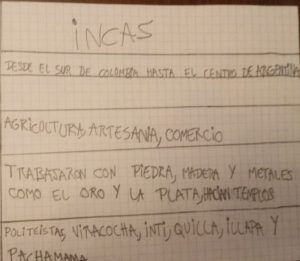 INCAS
DESDE EL SUR DE COLOMBIA HASTA EL CENTRO DE ARGENTINA
AGRICOLTURA, ARTESANIA, COMERCIO
TRABAJARON CON PIEDRA, MADERA Y METALES
COMO EL ORO Y LA PLATA, HACIAN TEMPLOS
POLITEISTAS, VIRACOCHA, INTI, QUILLA, ILLAPA Y
PACHAMAMA